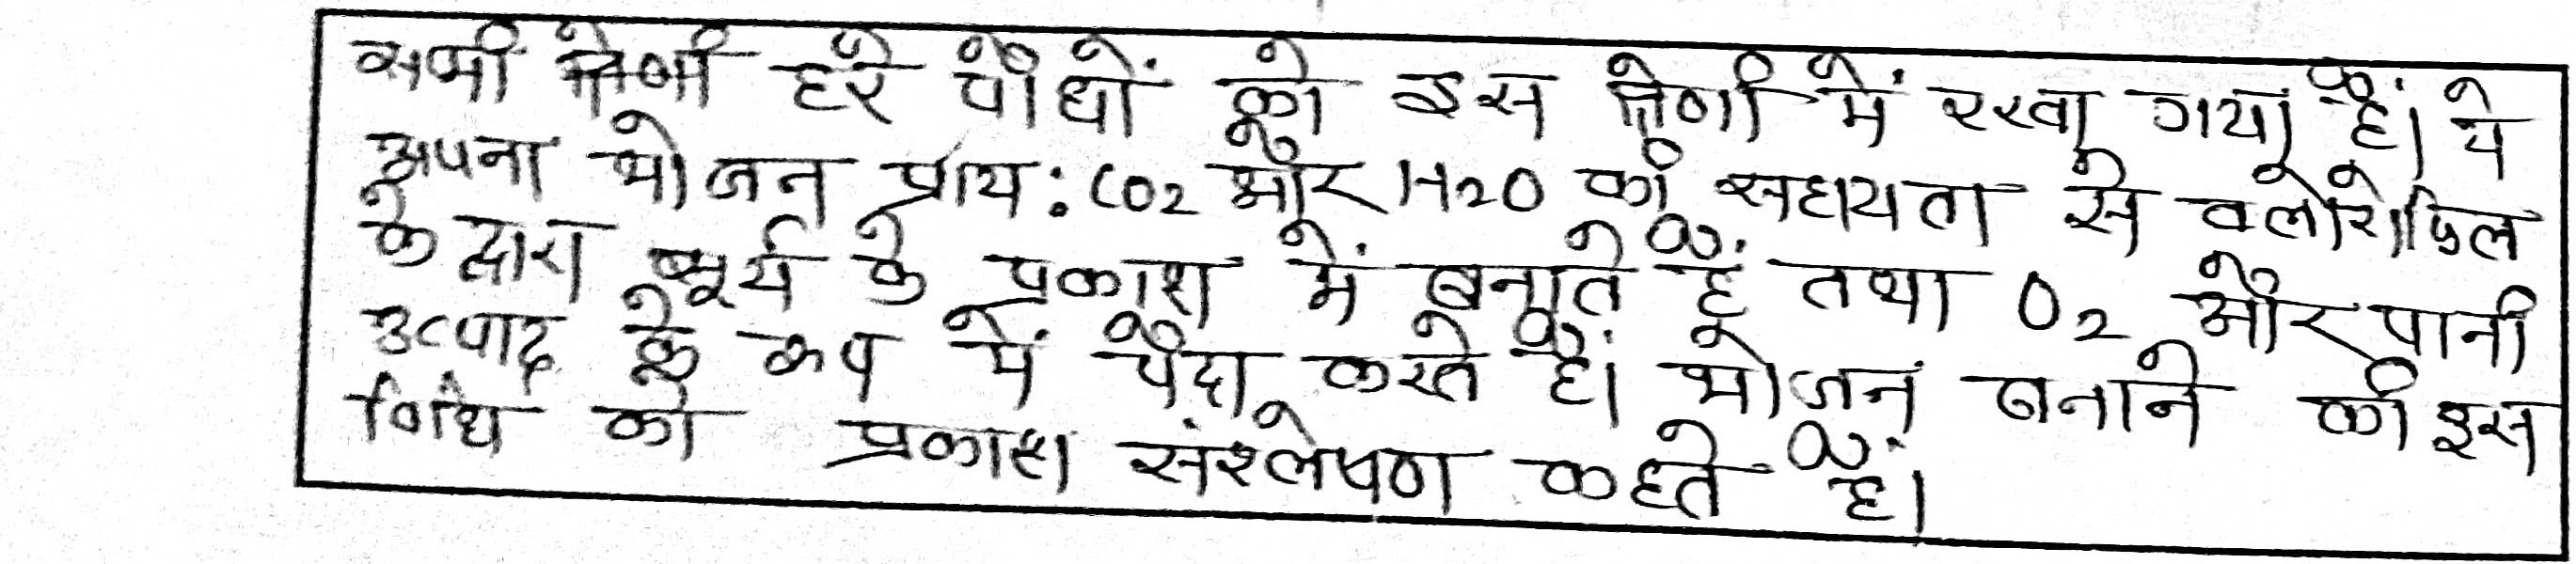 सभी श्रेणी हरे पौधों को इस श्रेणी में रखा गया हैं। ये
अपना भोजन प्राय: CO2 और H2O की सहायता से क्लोरोफिल
के द्वारा सूर्य के प्रकाश में बनाते हैं तथा O2 और पानी
उत्पाद के रूप में पैदा करते हैं। भोजन बनाने की इस
विधि को प्रकाश संश्लेषण कहते हैं।